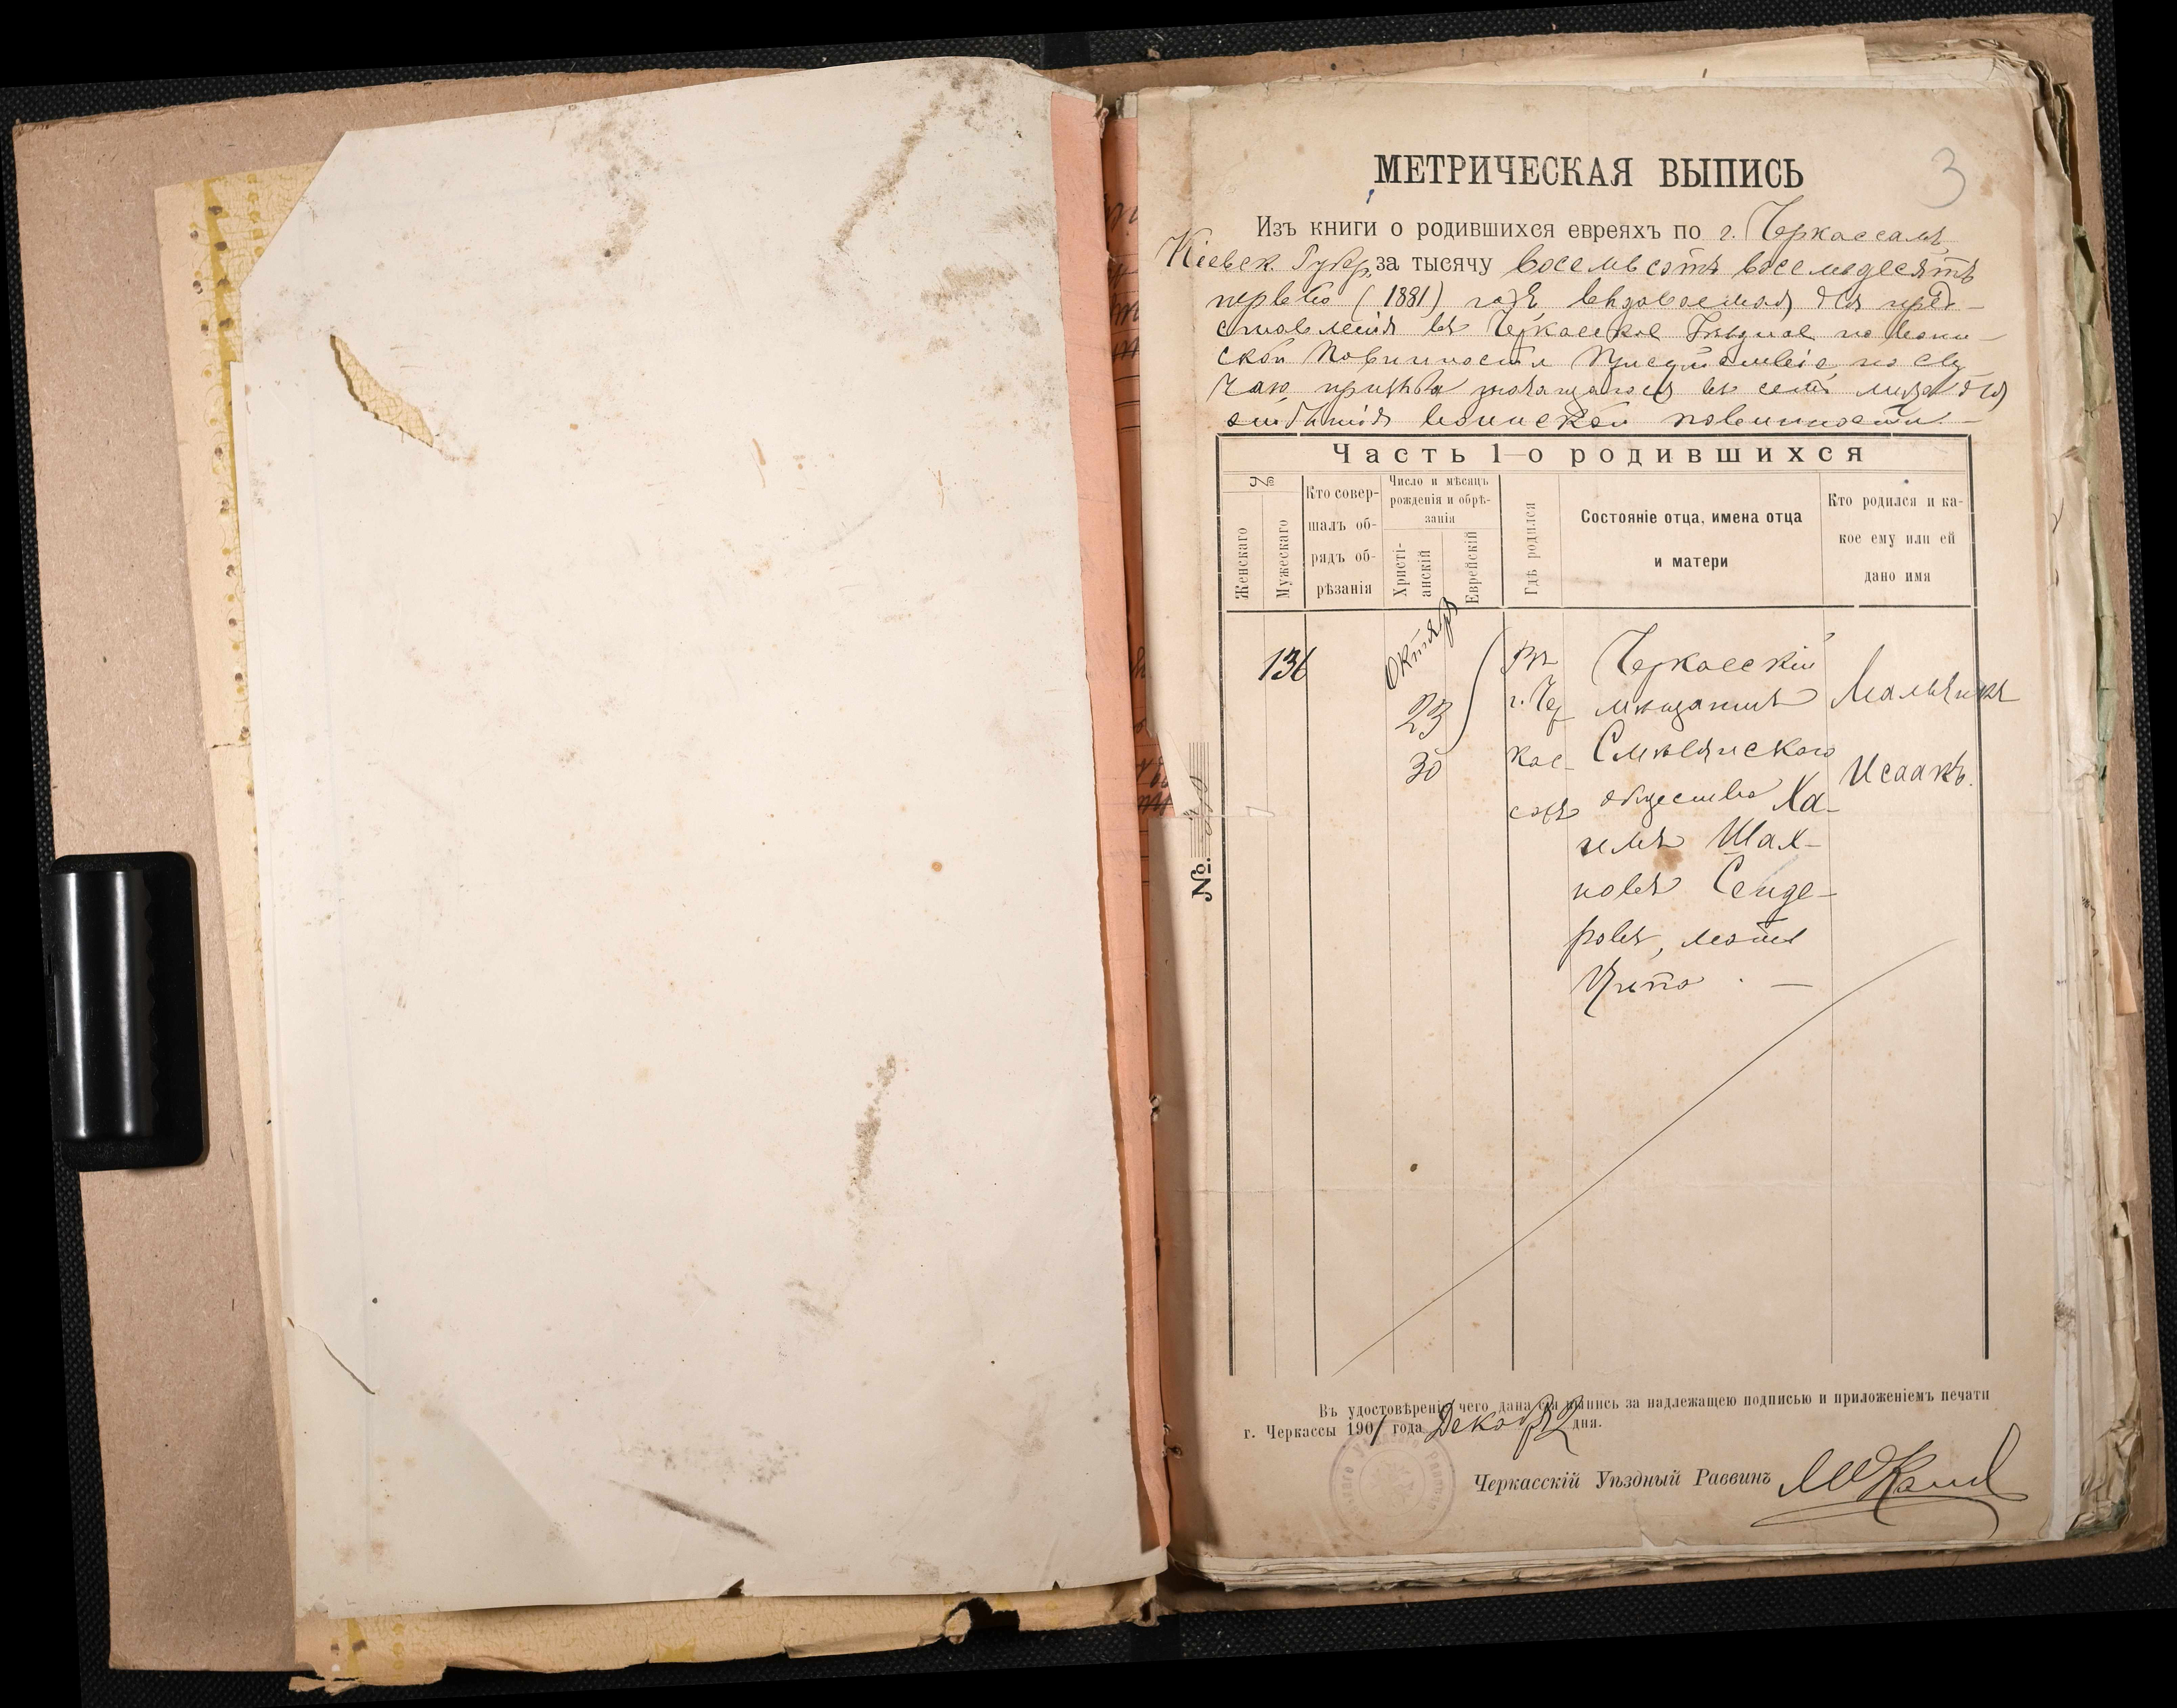 3
МЕТРИЧЕСКАЯ ВЫПИСЬ
Изъ книги о родившихся евреяхъ по г. Черкассамъ,
Кіевск. Губер. за тысячу восемьсотъ восемьдесятъ
первый (1881) годъ, выдаваемая для пред-
ставленія въ Черкасское Уѣздное по воин-
ской Повинности Присутствіе, по слу-
чаю призыва въ семъ для
отбытія воинской повинности. —
Часть 1-о родившихся
№
Женскаго
Мужескаго
Кто совер-
шалъ об-
рядъ об-
рѣзанія
Число и мѣсяцъ
рожденія и обрѣ-
занія
Христі-
анскій
Еврейскій
Гдѣ родился
Состояніе отца, имена отца
и матери
Кто родился и ка-
кое ему или ей
дано имя
136
Октября
23
30
Въ
г. Чер
кас-
сахъ
Черкасскій
мѣщанинъ
Смѣлянскаго
общества Ха-
имъ Шах-
новъ Сенде-
ровъ, мать
Мальчикъ
Исаакъ.
№.
Въ удостовѣреніе чего дана сія выпись за надлежащею подписью и приложеніемъ печати
г. Черкассы 1901 года Декабря 2 дня.
Черкасскій Уѣздный Раввинъ